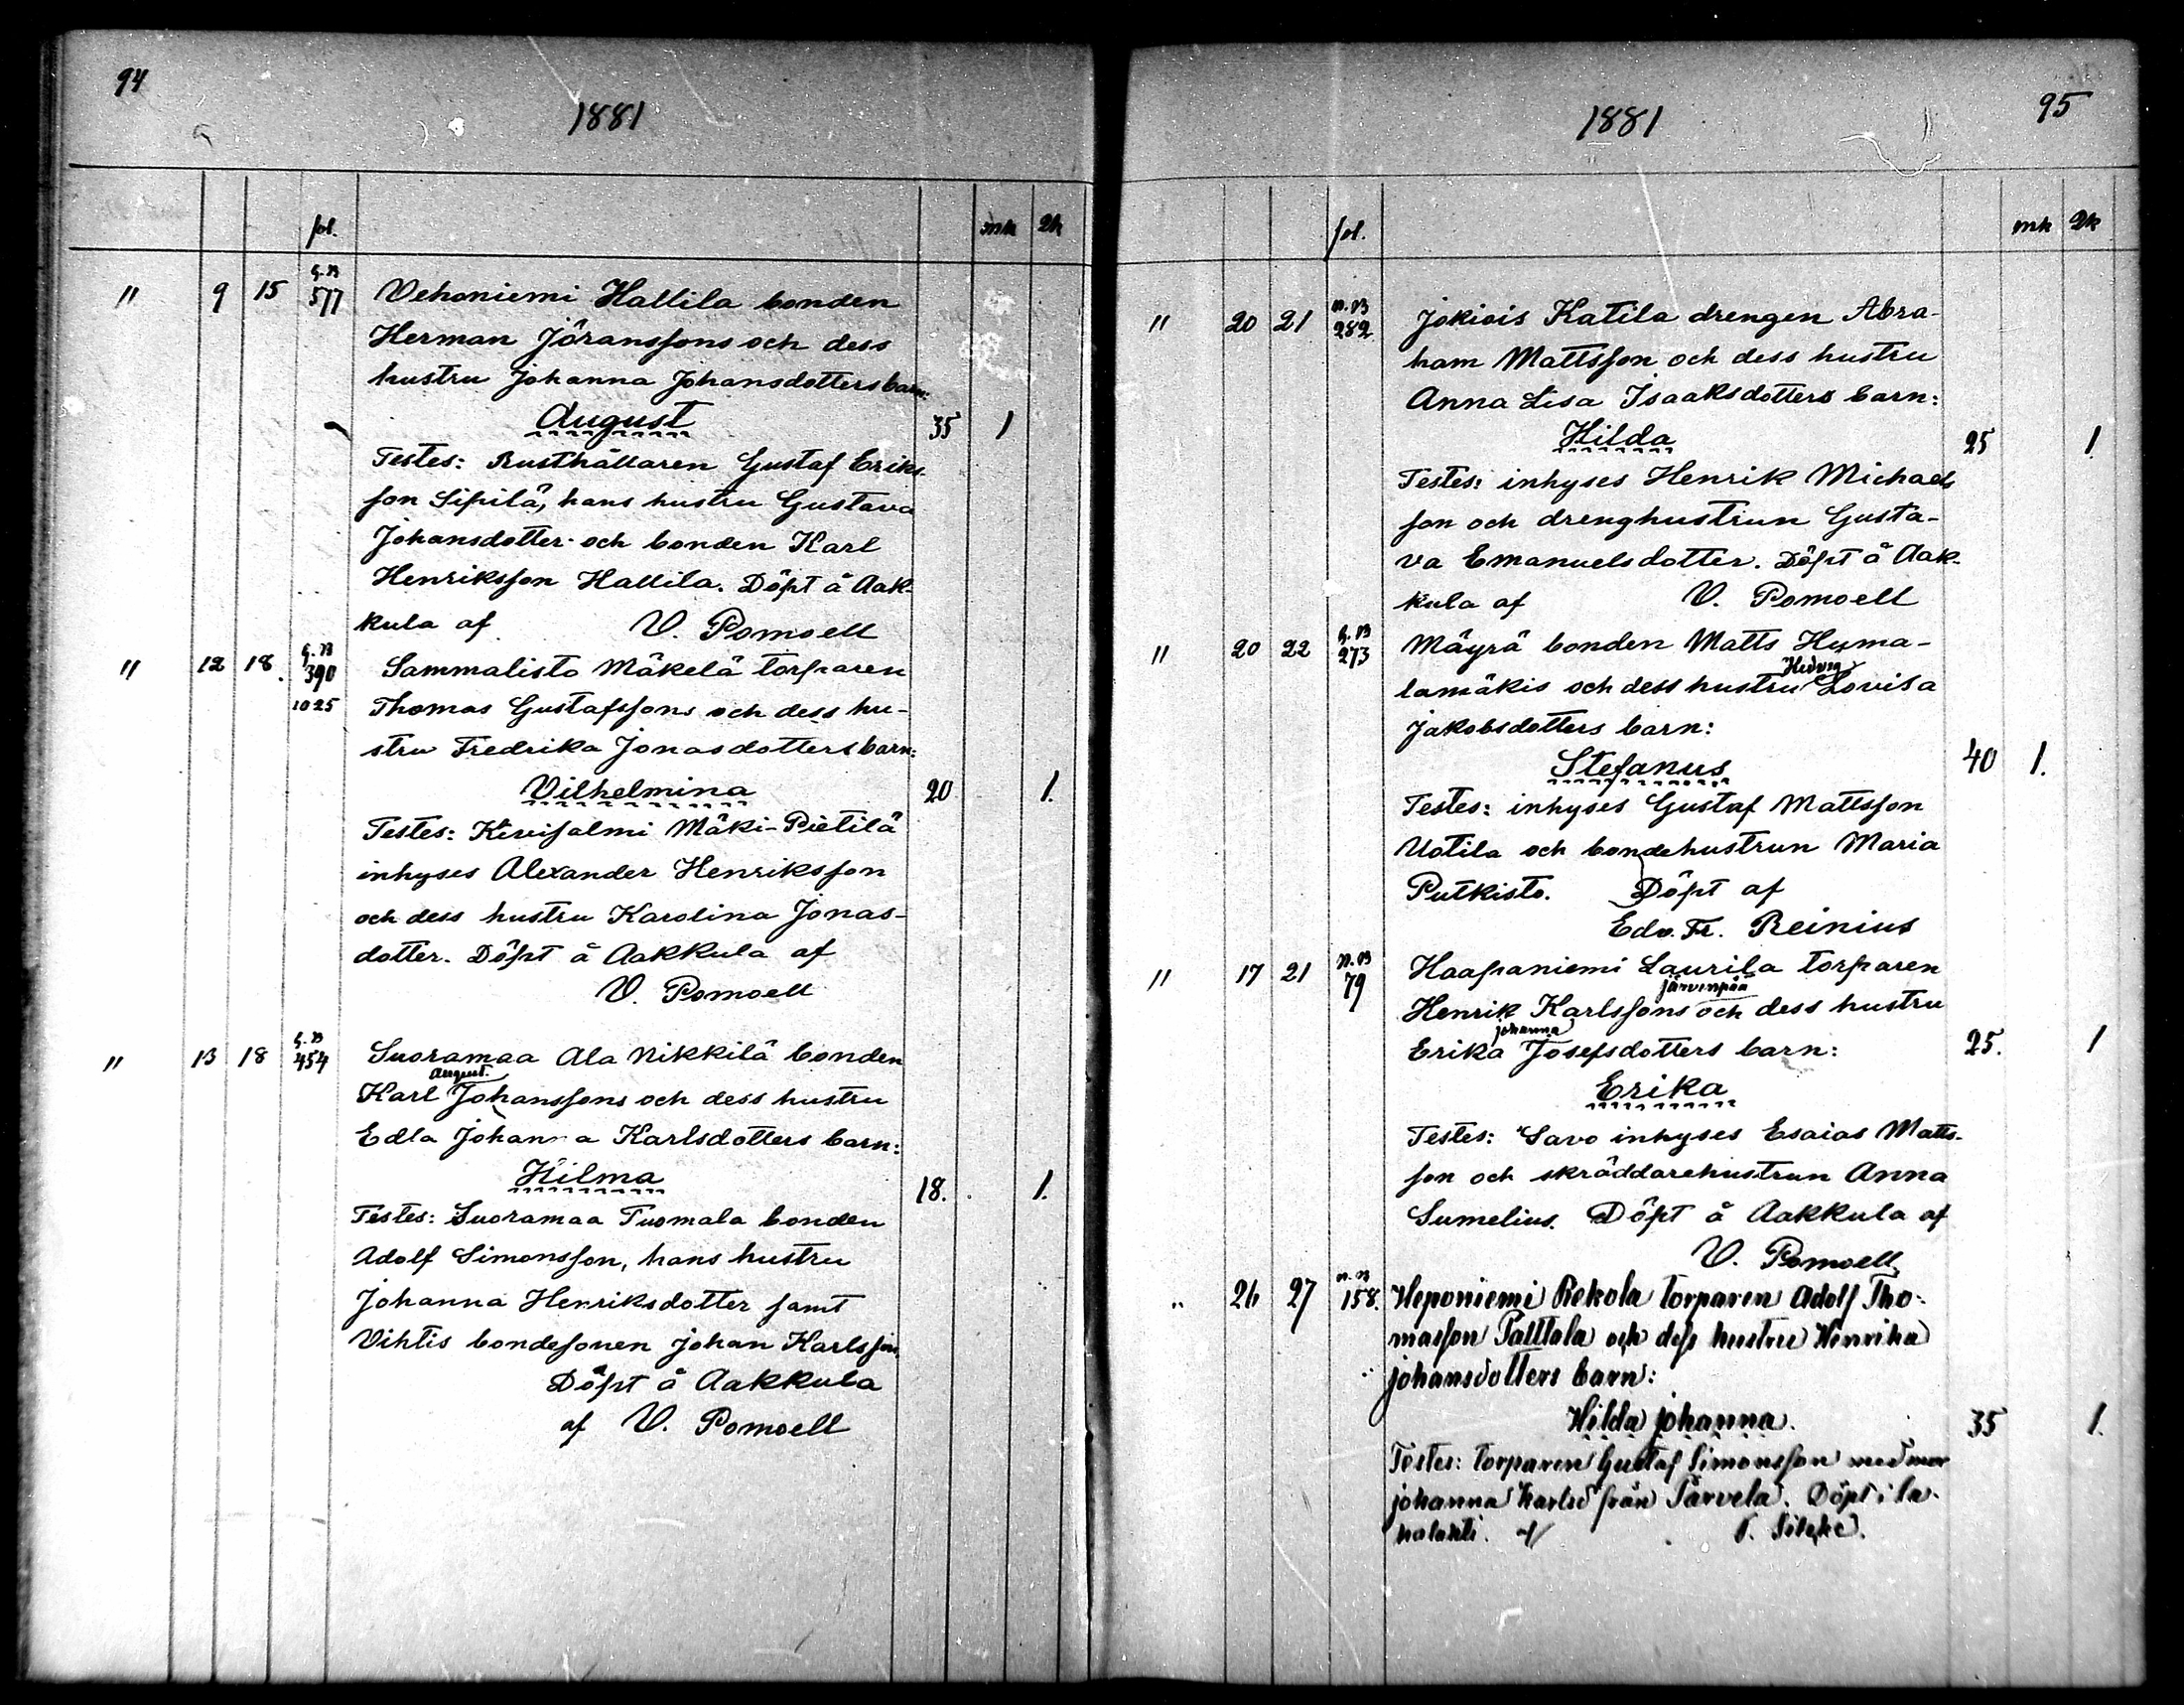 94
1881
fol. mk Qk
" 9 15 G.B 577 Vehoniemi Hallila bonden
Herman Jöranssons och dess
hustru Johanna Johansdotters barn:
August 35 1
Testes: Rusthållaren Gustaf Eriks-
son Sipilä, hans hustru Gustava
Johansdotter och bonden Karl
Henriksson Hallila. Döpt å Aak-
kula af V. Pomoell
" 12 18. G.B 390 Sammalisto Mäkelä torparen
1025 Thomas Gustafssons och dess hu-
stru Fredrika Jonasdotters barn:
Vilhelmina 20 1.
Testes: Kivisalmi Mäki-Pietilä
inhyses Alexander Henriksson
och dess hustru Karolina Jonas-
dotter. Döpt å Aakkula af
V. Pomoell
" 13 18 G.B 454 Suoramaa Ala Nikkilä bonden
August.
Karl Johanssons och dess hustru
Edla Johanna Karlsdotters barn:
Hilma 18. 1.
Testes: Suoramaa Tuomala bonden
Adolf Simonsson, hans hustru
Johanna Henriksdotter samt
Vihtis bondesonen Johan Karlsson.
Döpt å Aakkula
af V. Pomoell
95
1881
fol. mk Qk
" 20 21 N.B 282 Jokiois Katila drengen Abra-
ham Mattsson och dess hustru
Anna Lisa Isaaksdotters barn:
Hilda 25 1.
Testes: inhyses Henrik Michaels
son och drenghustrun Gusta-
va Emanuelsdotter. Döpt å Aak-
kula af V. Pomoell
" 20 22 G.B 273 Mäyrä bonden Matts Huma-
Hedvig
lamäkis och dess hustru Lovisa
Jakobsdotters barn:
Stefanus 40 1.
Testes: inhyses Gustaf Mattsson
Uotila och bondehustrun Maria
Putkisto. Döpt af
Edv. Fr. Reinius
" 17 21 N.B 79 Haapaniemi Laurila torparen
Järvenpää
Henrik Karlssons och dess hustru
Johanna
Erika Josefsdotters barn: 25. 1
Erika
Testes: Savo inhyses Esaias Matts-
son och skräddarehustrun Anna
Sumelius. Döpt å Aakkula af
V. Pomoell.
" 26 27 N.B 158. Heponiemi Rekola torparen Adolf Tho-
masson Palttala och dess hustru Henrika
Johansdotters barn:
Hilda Johanna. 35 1.
Testes: torparen Gustaf Simonsson med mor
Johanna Karlsd från Parvela. Döpt i la-
halahti. af